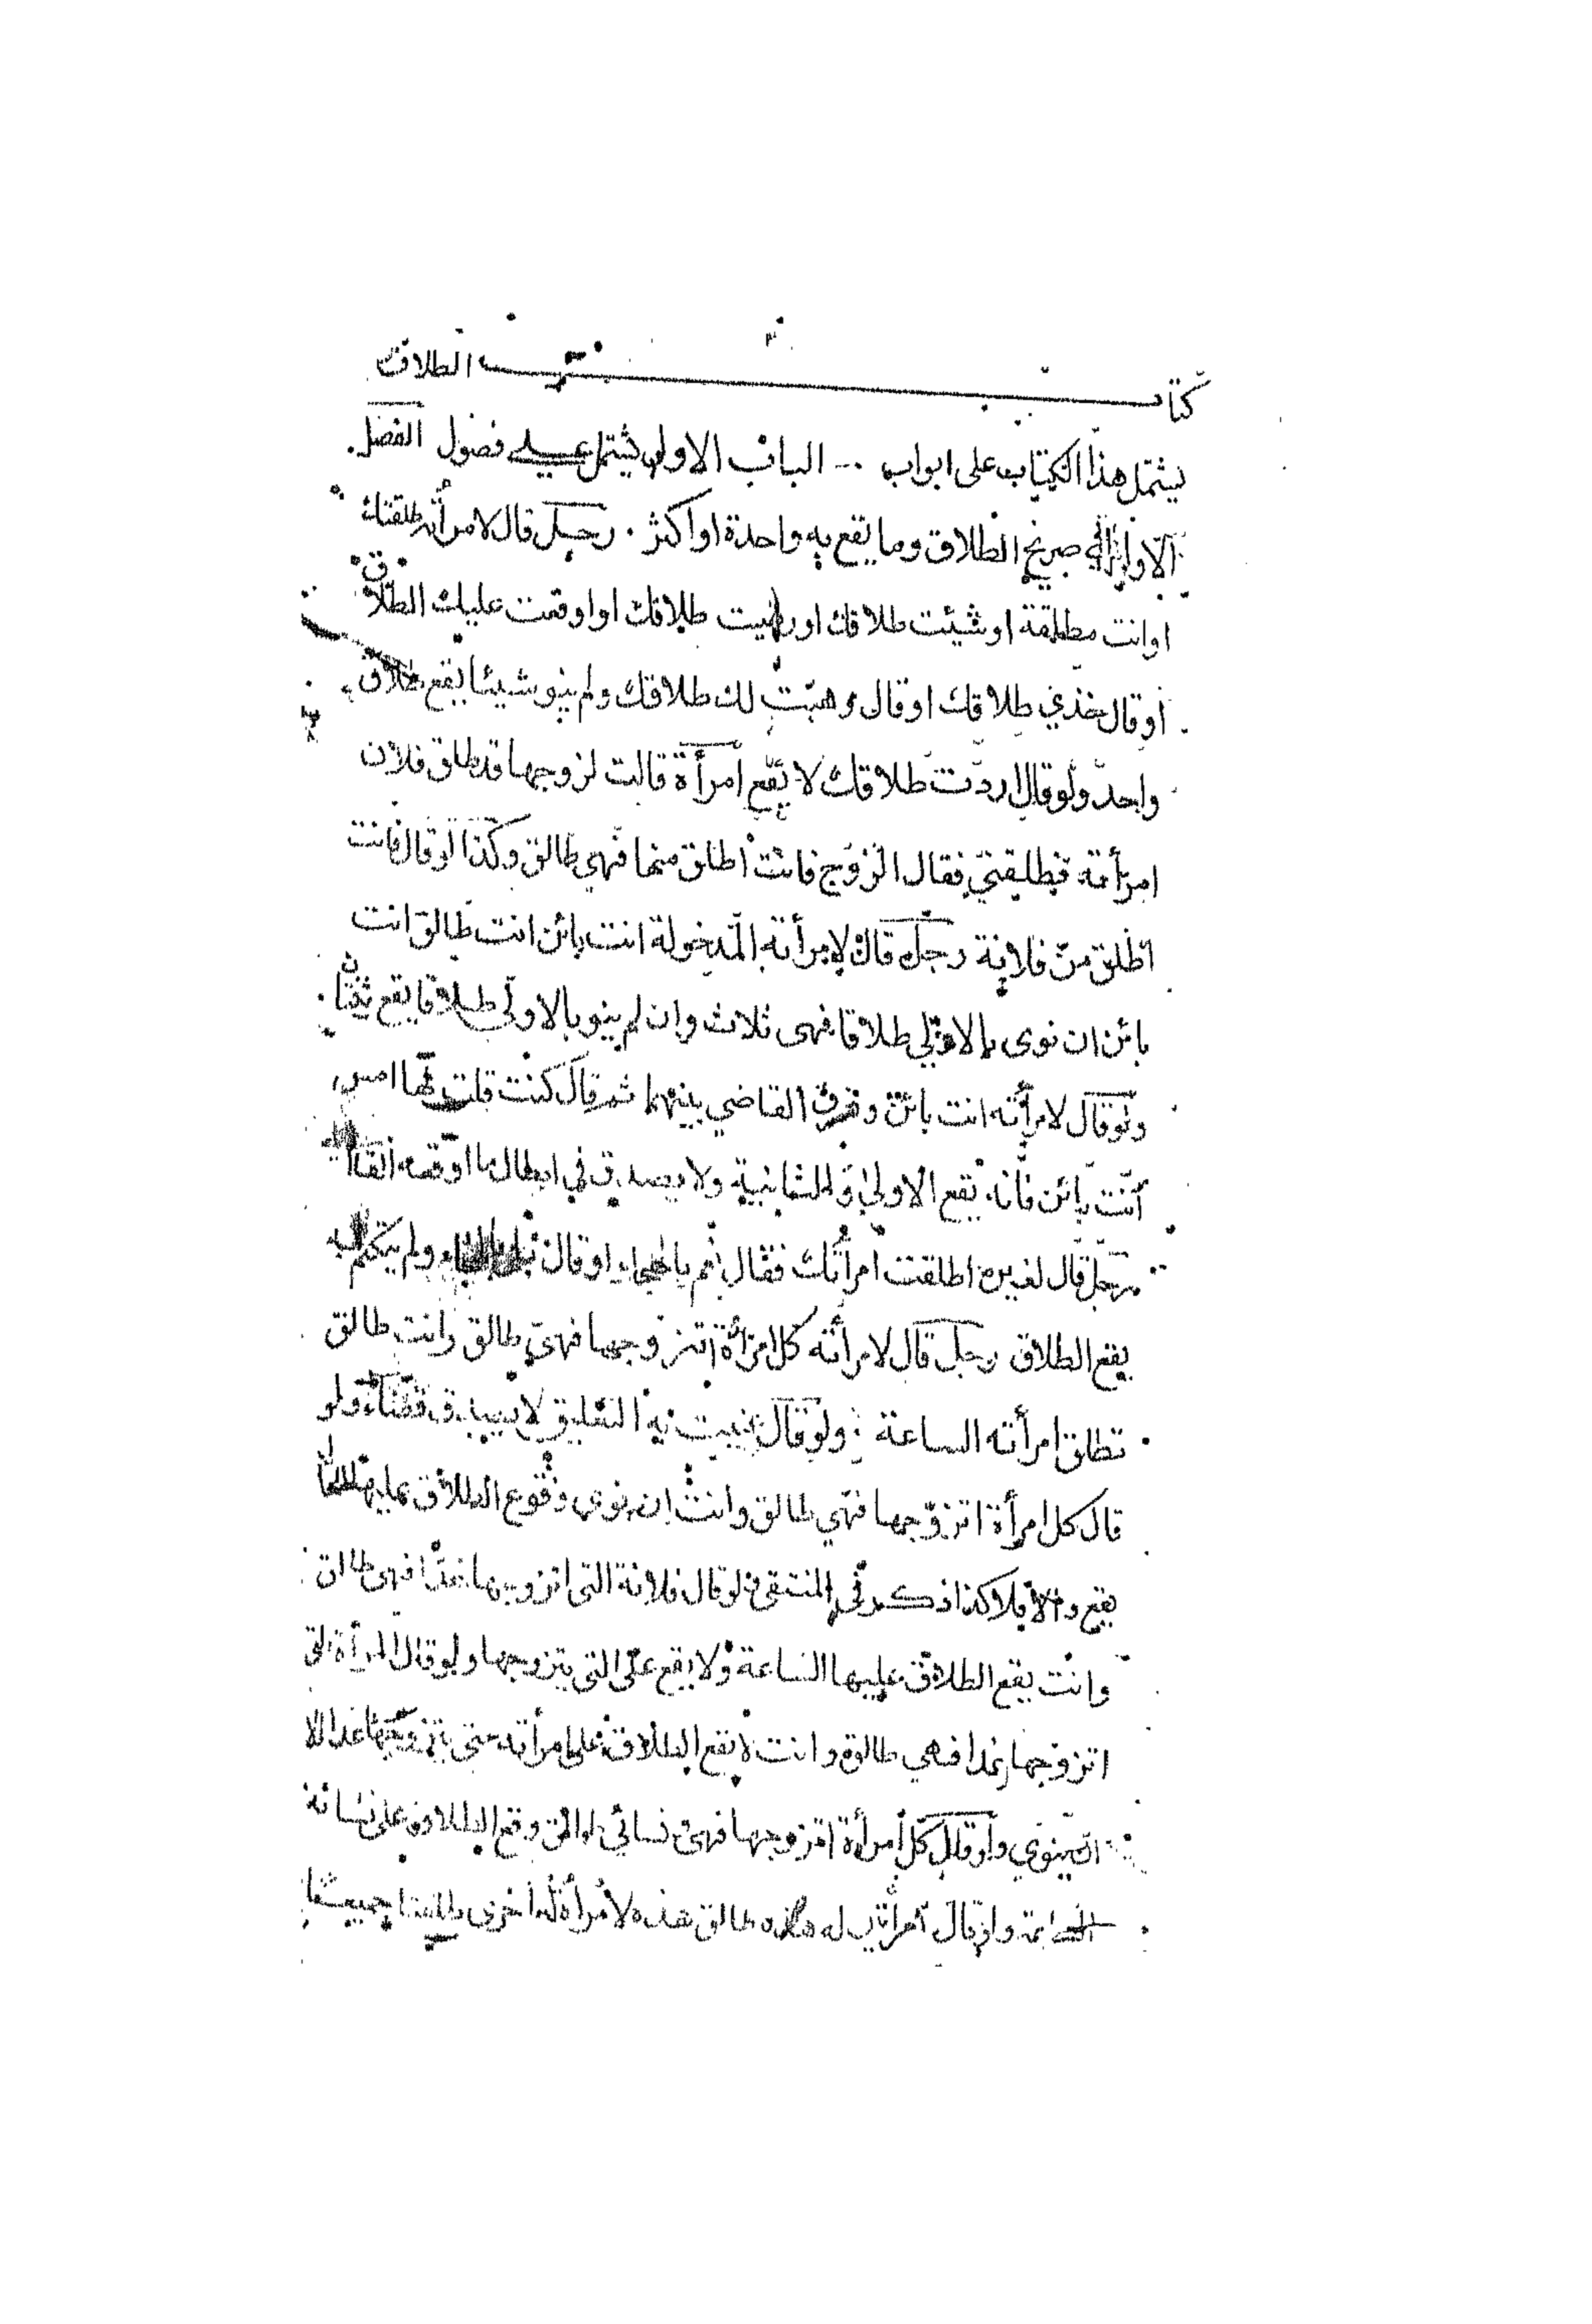 كتاب الطلاق
يشتمل هذا الكتاب على ابواب الباب الاول يشتمل على فصول الفصل
الاول في صريح الطلاق وما يقع به واحدة او اكثر رجل قال لامرأته طلقتك
او انت مطلقة او شئت طلاقك او رضيت طلاقك او اوقعت عليك الطلاق
او قال خذي طلاقك او قال وهبت لك طلاقك ولم ينو شيئا يقع طلاق
واحد ولو قال اردت طلاقك لا يقع امرأة قالت لزوجها قد طلق فلان
امرأته فطلقني فقال الزوج فانت اطلق منها فهي طالق وكذا لو قال فانت
اطلق من فلانة رجل قال لامرأته المدخولة انت بائن انت طالق انت
بائن ان نوى بالاولى طلاقا فهى ثلاث وان لم ينو بالاولى طلاقا يقع ثنتان
ولو قال لامرأته انت بائن وفرق القاضي بينهما ثم قال كنت قلت لها امس
انت بائن فانه يقع الاولى والثانية ولا يصدق في ابطال ما اوقعه القاضي
رجل قال لغيره اطلقت امرأتك فقال نعم بالهجاء او قال بلى بالهجاء ولم يتكلم به
يقع الطلاق رجل قال لامرأته كل امرأة اتزوجها فهي طالق وانت طالق
تطلق امرأته الساعة ولو قال عنيت به التعليق لا يصدق قضاء ولو
قال كل امرأة اتزوجها فهي طالق وانت ان نوى وقوع الطلاق عليها
يقع والا فلا كذا ذكر في المنتقى ولو قال فلانة التى اتزوجها غدا فهى طالق
وانت يقع الطلاق عليها الساعة ولا يقع على التى يتزوجها ولو قال المرأة التى
اتزوجها غدا فهي طالق وانت لا يقع الطلاق على امرأته حتى يتزوجها غدا الا
ان ينوي ولو قال كل امرأة اتزوجها فهى ونسائي طوالق وقع الطلاق على نسائه
ولو قال امرأتي له هذه طالق هذه لامرأة له اخرى طلقتا جميعا